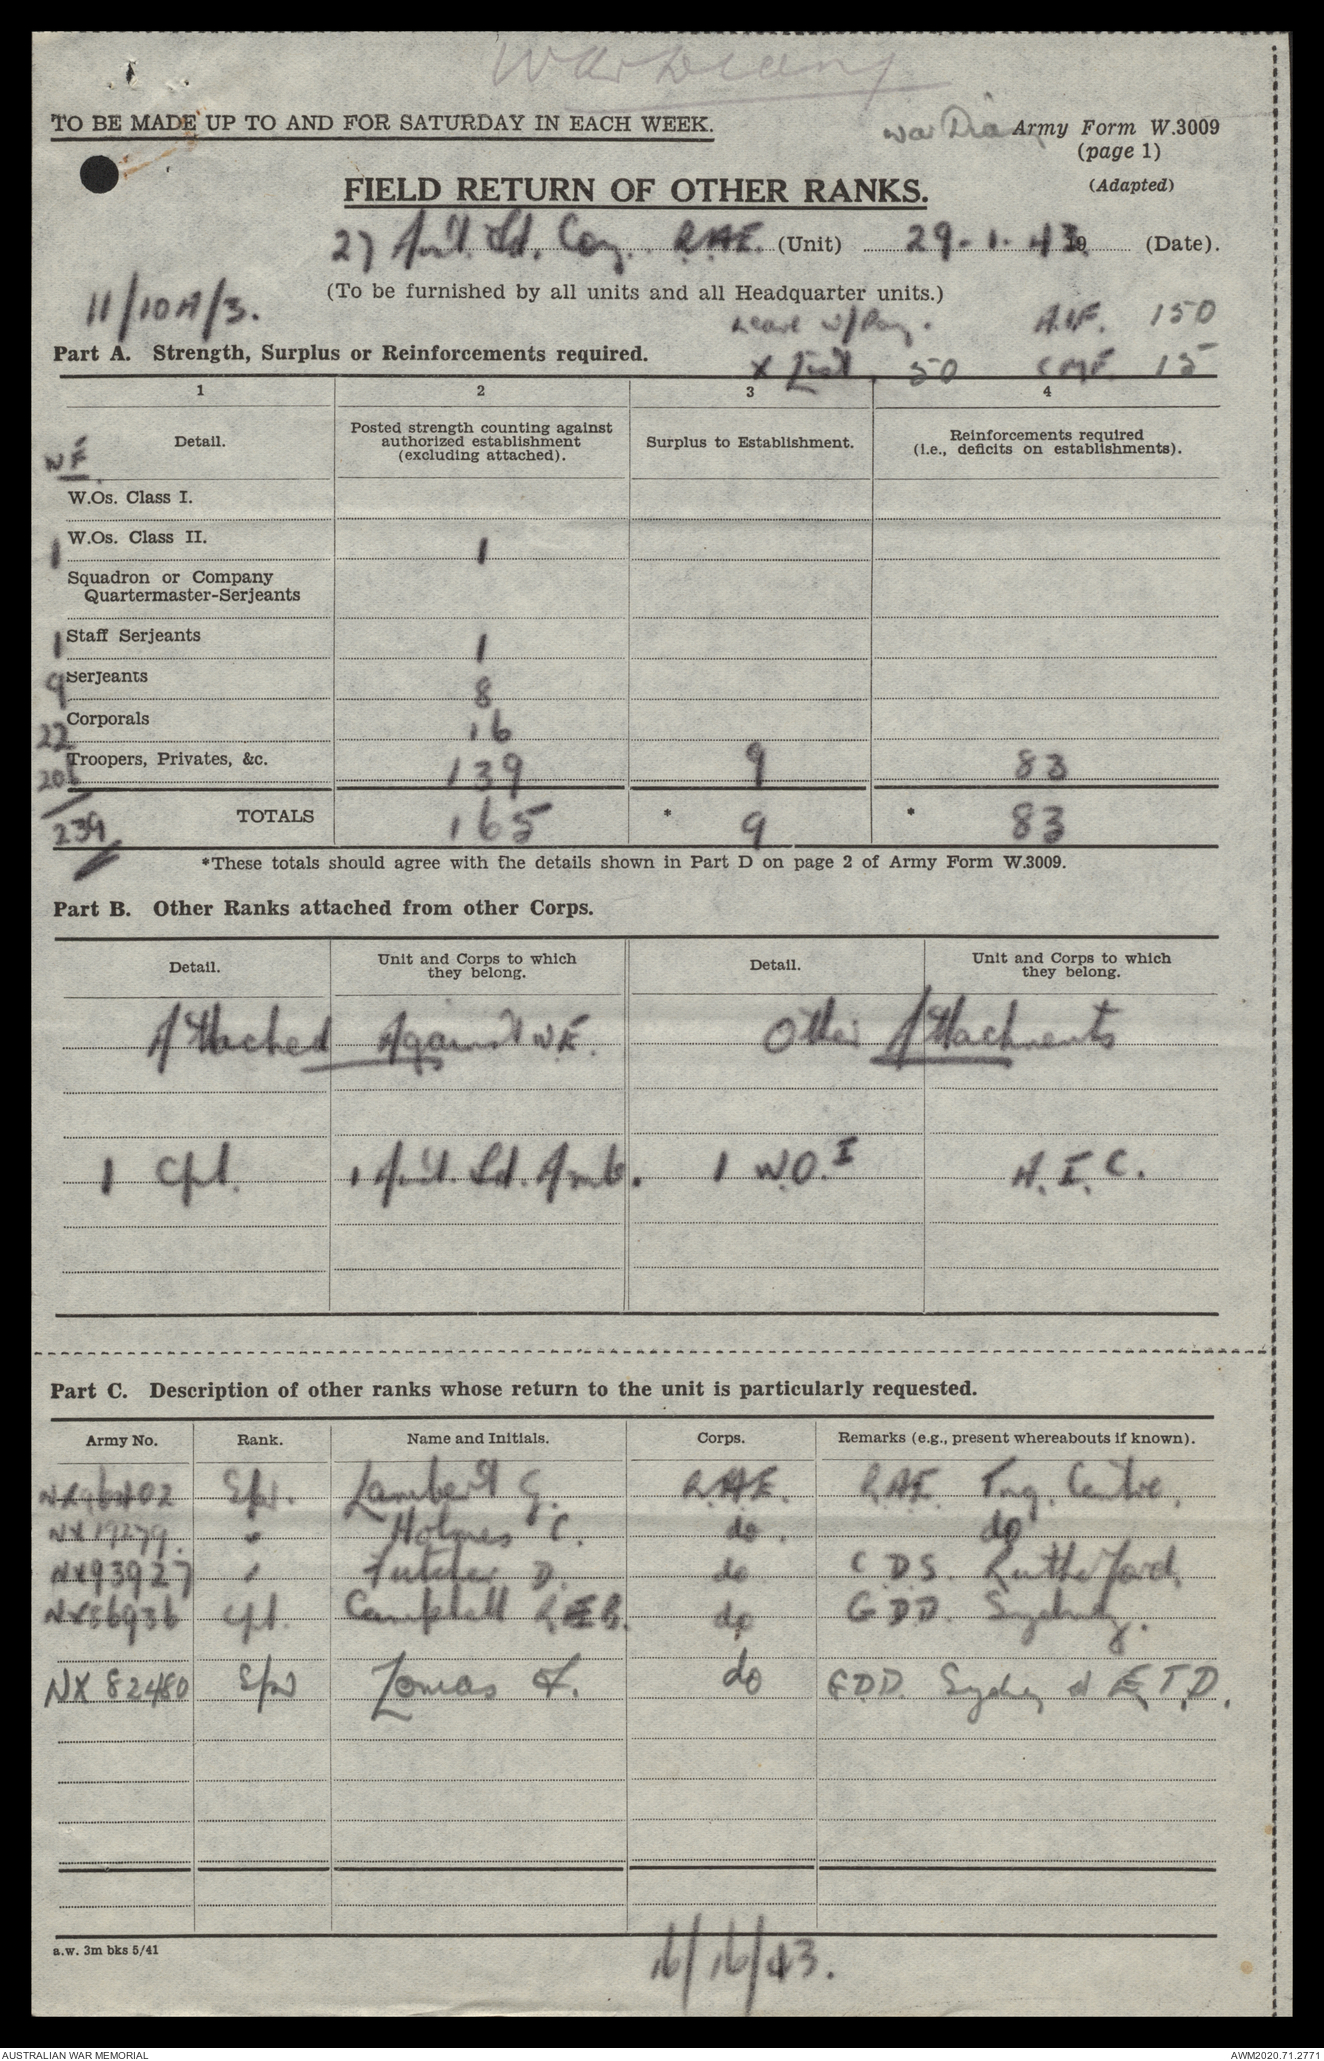 War Diary
TO BE MADE UP TO AND FOR SATURDAY IN EACH WEEK.
War Diary
Army Form W.3009
(page 1)
(Adapted)
FIELD RETURN OF OTHER RANKS.
27 Aust. Fd. Coy. R.A.E. (Unit) 29.1.43 19 (Date).
(To be furnished by all units and all Headquarter units.)
11/10A/3.
Leave w/Pay. A.I.F. 150
X List. 50 CMF. 15
Part A. Strength, Surplus or Reinforcements required.
1 2 3 4
WE
Detail. Posted strength counting against authorized establishment (excluding attached). Surplus to Establishment. Reinforcements required (i.e., deficits on establishments).
W.Os. Class I.
1 W.Os. Class II. 1
Squadron or Company
Quartermaster-Serjeants
1 Staff Serjeants 1
9 Serjeants 8
22 Corporals 16
206 Troopers, Privates, &c. 139 9 83
239 TOTALS 165 * 9 * 83
*These totals should agree with the details shown in Part D on page 2 of Army Form W.3009.
Part B. Other Ranks attached from other Corps.
Detail. Unit and Corps to which they belong. Detail. Unit and Corps to which they belong.
Attached Against W.E. Other Attachments
1 Cpl. 1 Aust. Fd. Amb. 1 W.O.I A.I.C.
Part C. Description of other ranks whose return to the unit is particularly requested.
Army No. Rank. Name and Initials. Corps. Remarks (e.g., present whereabouts if known).
Spr. Lambert G. R.A.E. R.A.E. Trg. Centre.
NX19279. " Holmes C. do. do
NX93927 " Futcher D. do C.D.S. Rutherford.
NX56936 Cpl. Campbell R.E.B. do G.D.D. Sydney.
NX 82480 Spr Lomas F. do G.D.D. Sydney at E.T.D.
a.w. 3m bks 5/41
16/16/43.
AUSTRALIAN WAR MEMORIAL
AWM2020.71.2771